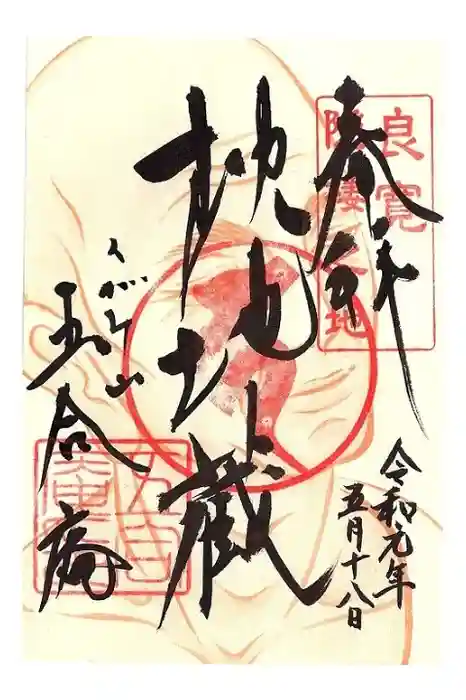 奉拝
良寛
隠棲之地
令和元年
五月十八日
枕地蔵
くがみ山
五合庵
五合庵